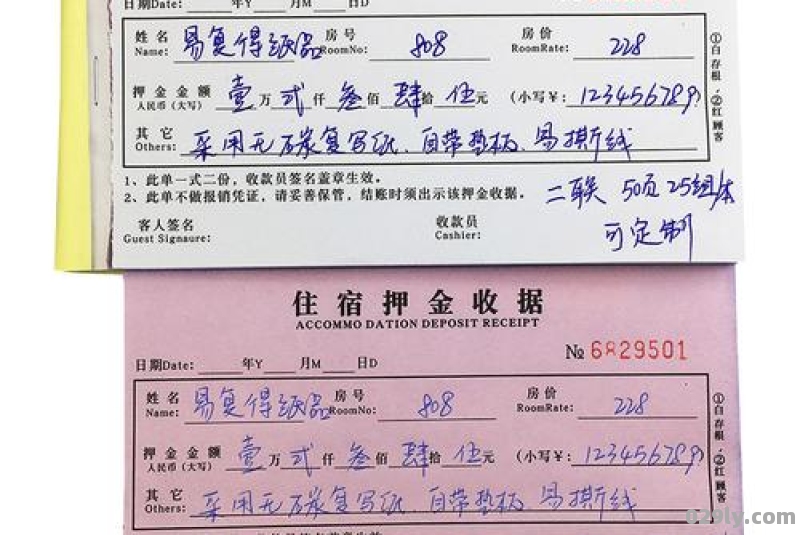 日期Date: 年Y 月M 日D
姓名 Name: 易复得纸品 房号 RoomNo: 808 房价 RoomRate: 228
押金金额 人民币（大写） 壹万贰仟叁佰肆拾伍元 （小写￥: 123456789）
其它 Others: 采用无碳复写纸、自带垫板、易撕线
①白存根·②红顾客
1、此单一式二份，收款员签名盖章生效。
2、此单不做报销凭证，请妥善保管，结账时须出示该押金收据。
二联 50页 25组/本
可定制
客人签名 Guest Signaure: 收款员 Cashier:
住宿押金收据
ACCOMMO DATION DEPOSIT RECEIPT
№ 6829501
日期Date: 年Y 月M 日D
姓名 Name: 易复得纸品 房号 RoomNo: 808 房价 RoomRate: 228
押金金额 人民币（大写） 壹万贰仟叁佰肆拾伍元 （小写￥: 123456789）
其它 Others: 采用无碳复写纸、自带垫板、易撕线
①白存根·②红顾客
029ly.com